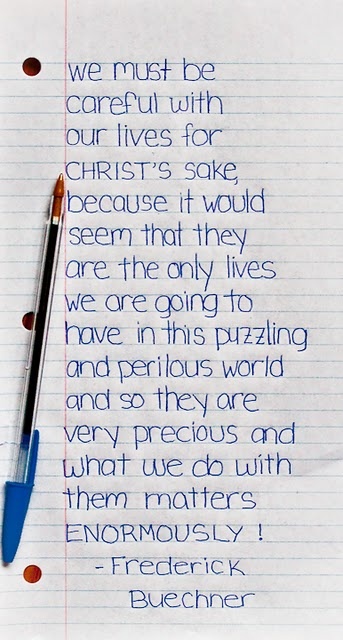 we must be
careful with
our lives for
CHRIST'S sake,
because it would
seem that they
are the only lives
we are going to
have in this puzzling
and perilous world
and so they are
very precious and
what we do with
them matters
ENORMOUSLY !
-Frederick
Buechner